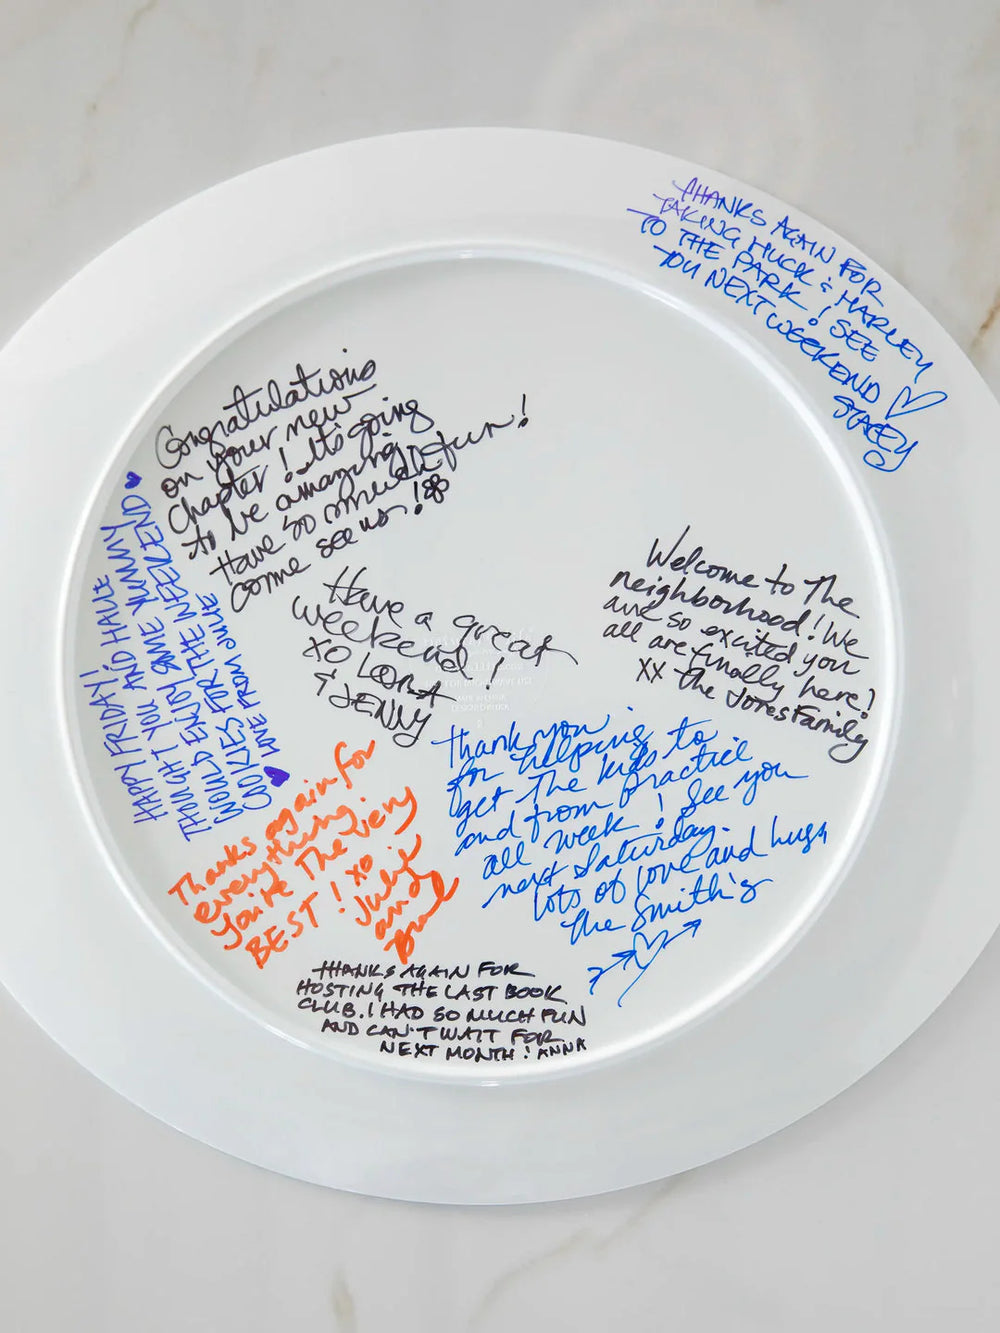 THANKS AGAIN FOR
TAKING HUCK & HARLEY
TO THE PARK! SEE
YOU NEXT WEEKEND
STACEY
Congratulations
on your new
chapter! It's going
to be amazing!
Have so much fun!
come see us!
HAPPY FRIDAY!
THOUGHT YOU AND HALLE
WOULD ENJOY SOME YUMMY
COOKIES FOR THE WEEKEND
LOVE FROM JULIE
Have a great
weekend!
XO LORA
& JENNY
Welcome to The
neighborhood! We
are so excited you
all are finally here!
XX The Jones Family
Thank you
for helping to
get The kids to
and from practice
all week! See you
next Saturday.
lots of love and hugs
The Smith's
Thanks again for
everything.
You're The very
BEST! XO
Julie
and
THANKS AGAIN FOR
HOSTING THE LAST BOOK
CLUB. I HAD SO MUCH FUN
AND CAN'T WAIT FOR
NEXT MONTH! ANNA